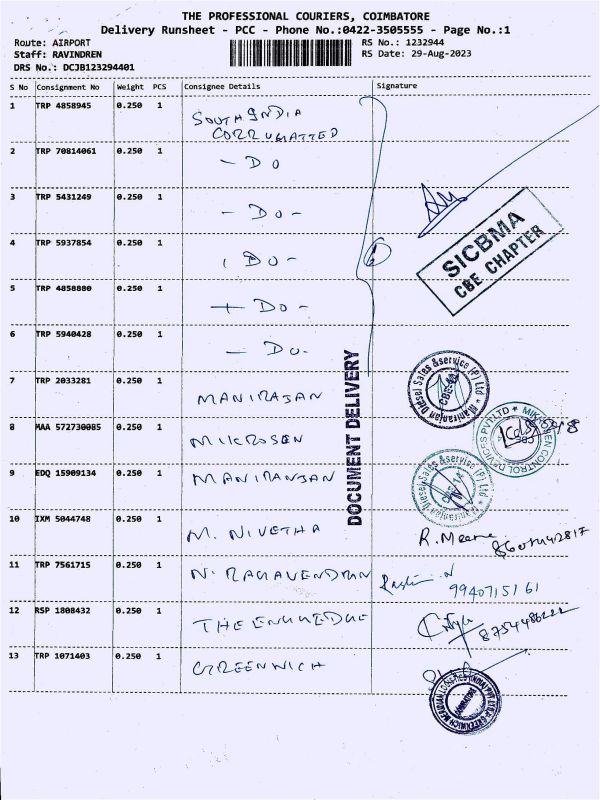 THE PROFESSIONAL COURIERS, COIMBATORE
Delivery Runsheet - PCC - Phone No.:0422-3505555 - Page No.:1
Route: AIRPORT
RS No.: 1232944
Staff: RAVINDREN
RS Date: 29-Aug-2023
DRS No.: DCJB123294401
S No Consignment No Weight PCS Consignee Details Signature
1 TRP 4858945 0.250 1 SOUTH INDIA
CORRUGATTED
2 TRP 70814061 0.250 1 - DO
3 TRP 5431249 0.250 1 - DO -
SICBMA
CBE CHAPTER
4 TRP 5937854 0.250 1 DO -
5 TRP 4858880 0.250 1 DO -
6 TRP 5940428 0.250 1 - DO -
DOCUMENT DELIVERY
7 TRP 2033281 0.250 1 MANIRAJAN
Maniranjan Diesel Sales & service (P) Ltd
8 MAA 572730085 0.250 1 MIKROSEN
CONTROL DEVICES PVT LTD
9 EDQ 15909134 0.250 1 MANIRANJAN
Maniranjan Diesel Sales & service (P) Ltd
10 IXM 5044748 0.250 1 M. NIVETHA R. Meena
11 TRP 7561715 0.250 1 N. RAGAVENDRAN
9940715161
12 RSP 1808432 0.250 1 THE
13 TRP 1071403 0.250 1 GREENWICH